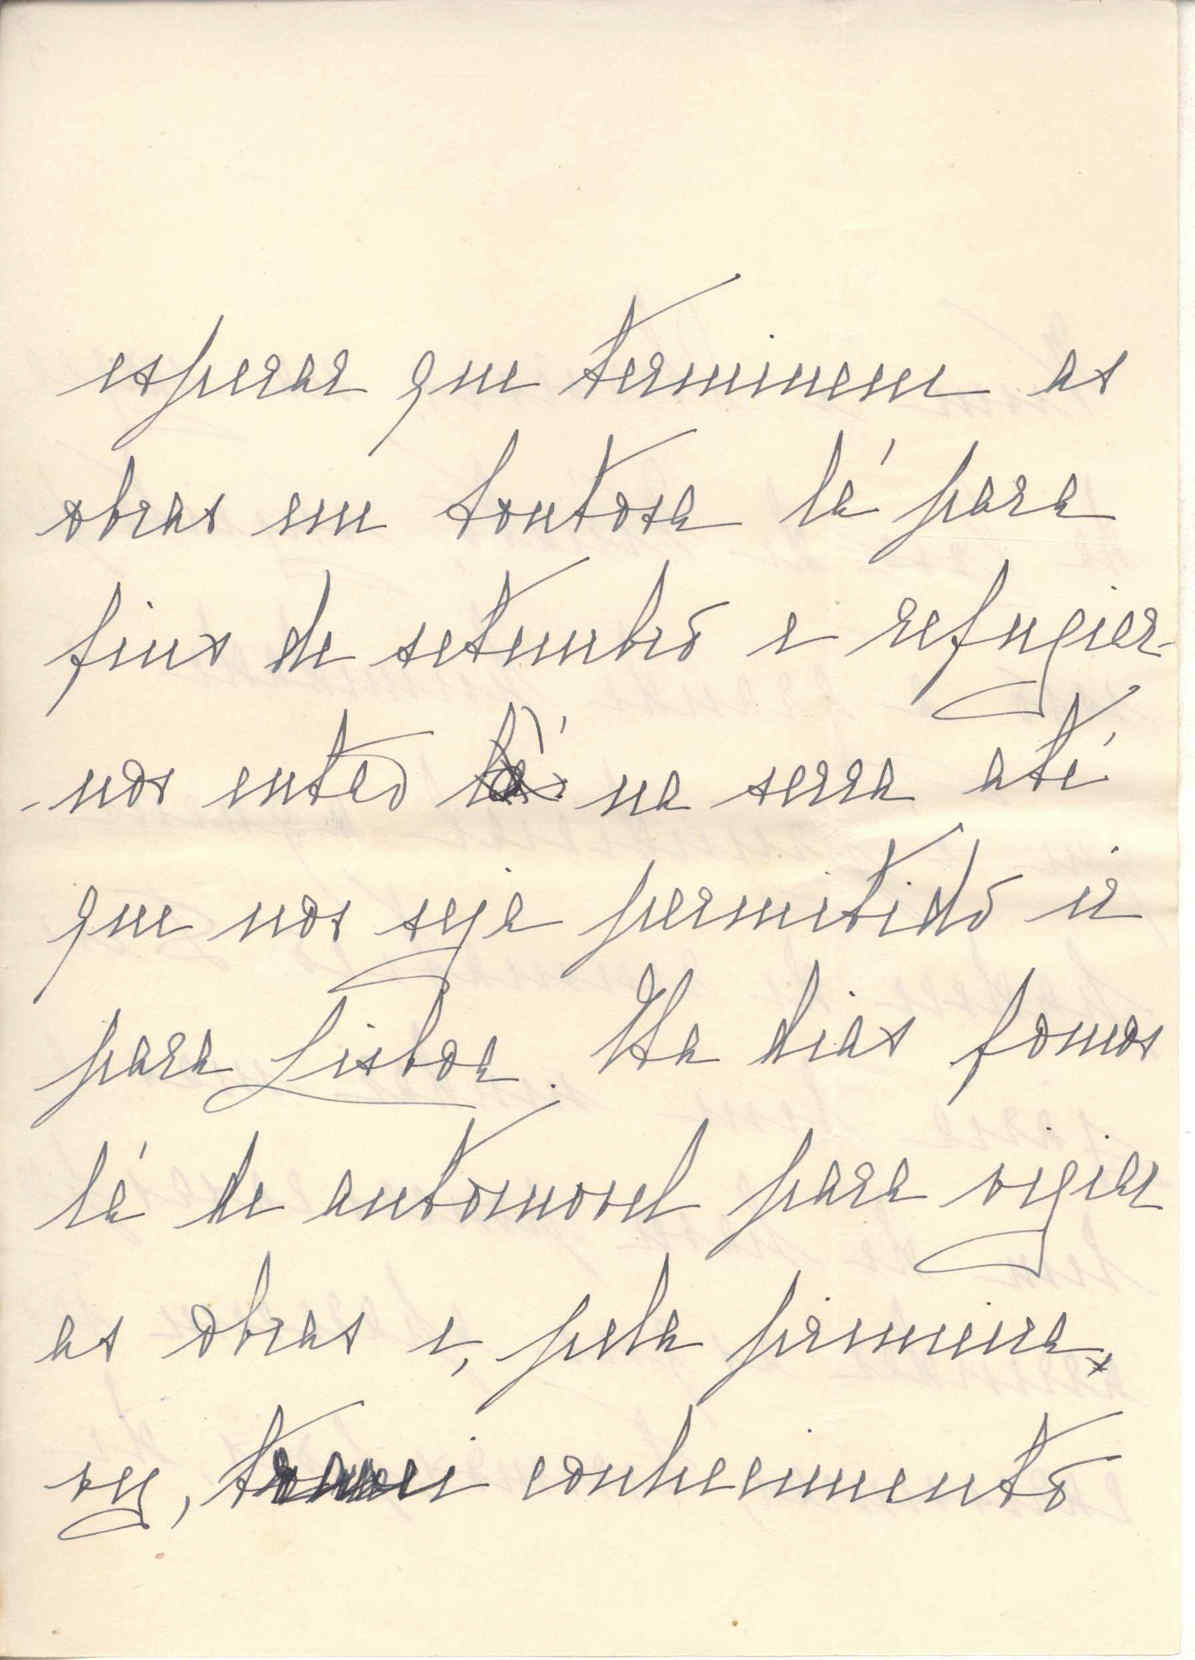 esperar que terminem as
obras em Tontosa lá para
fins de setembro e refugiar-
-nos então lá na serra até
que nos seja permitido ir
para Lisboa. Ha dias fomos
lá de automovel para vigiar
as obras e, pela primeira
vez, tomei conhecimento